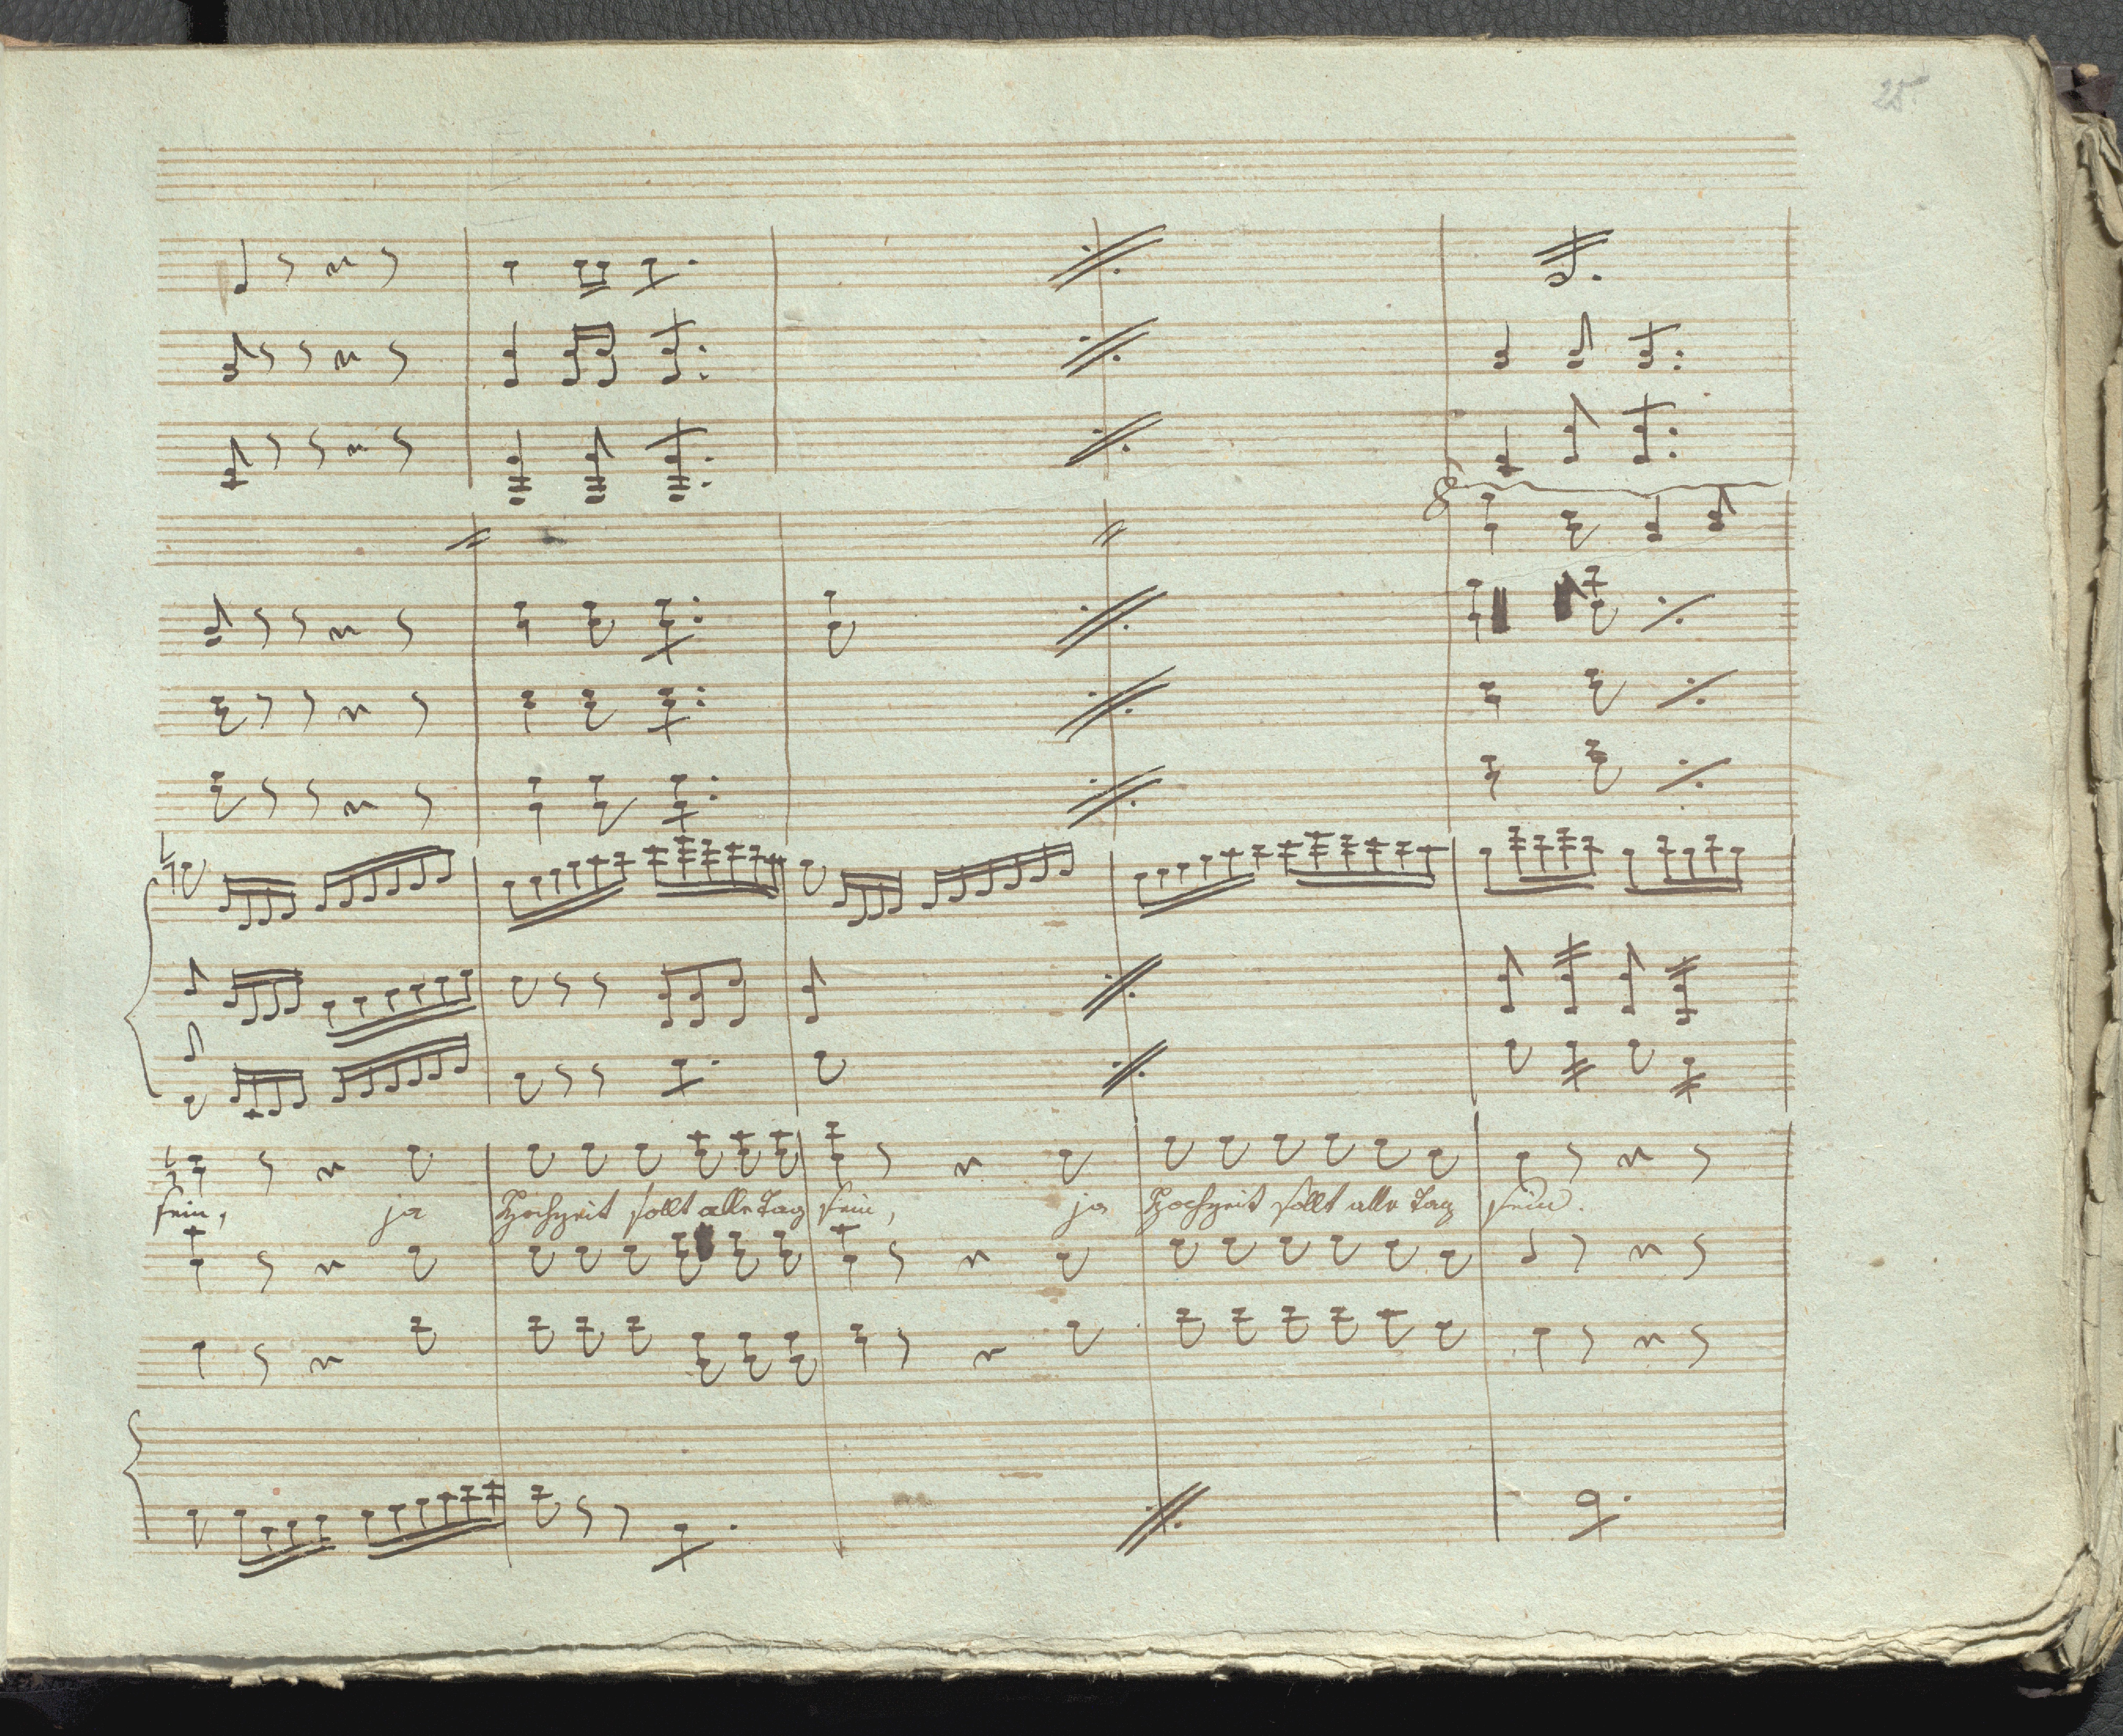 25.
8
sein, ja Hochzeit sollt alle Tag sein, ja Hochzeit sollt alle Tag sein.